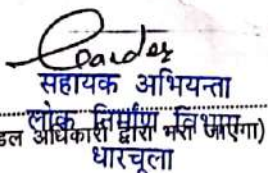 सहायक अभियन्ता
लोक निर्माण विभाग
डल अधिकारी द्वारा भरा जाएगा)
धारचूला